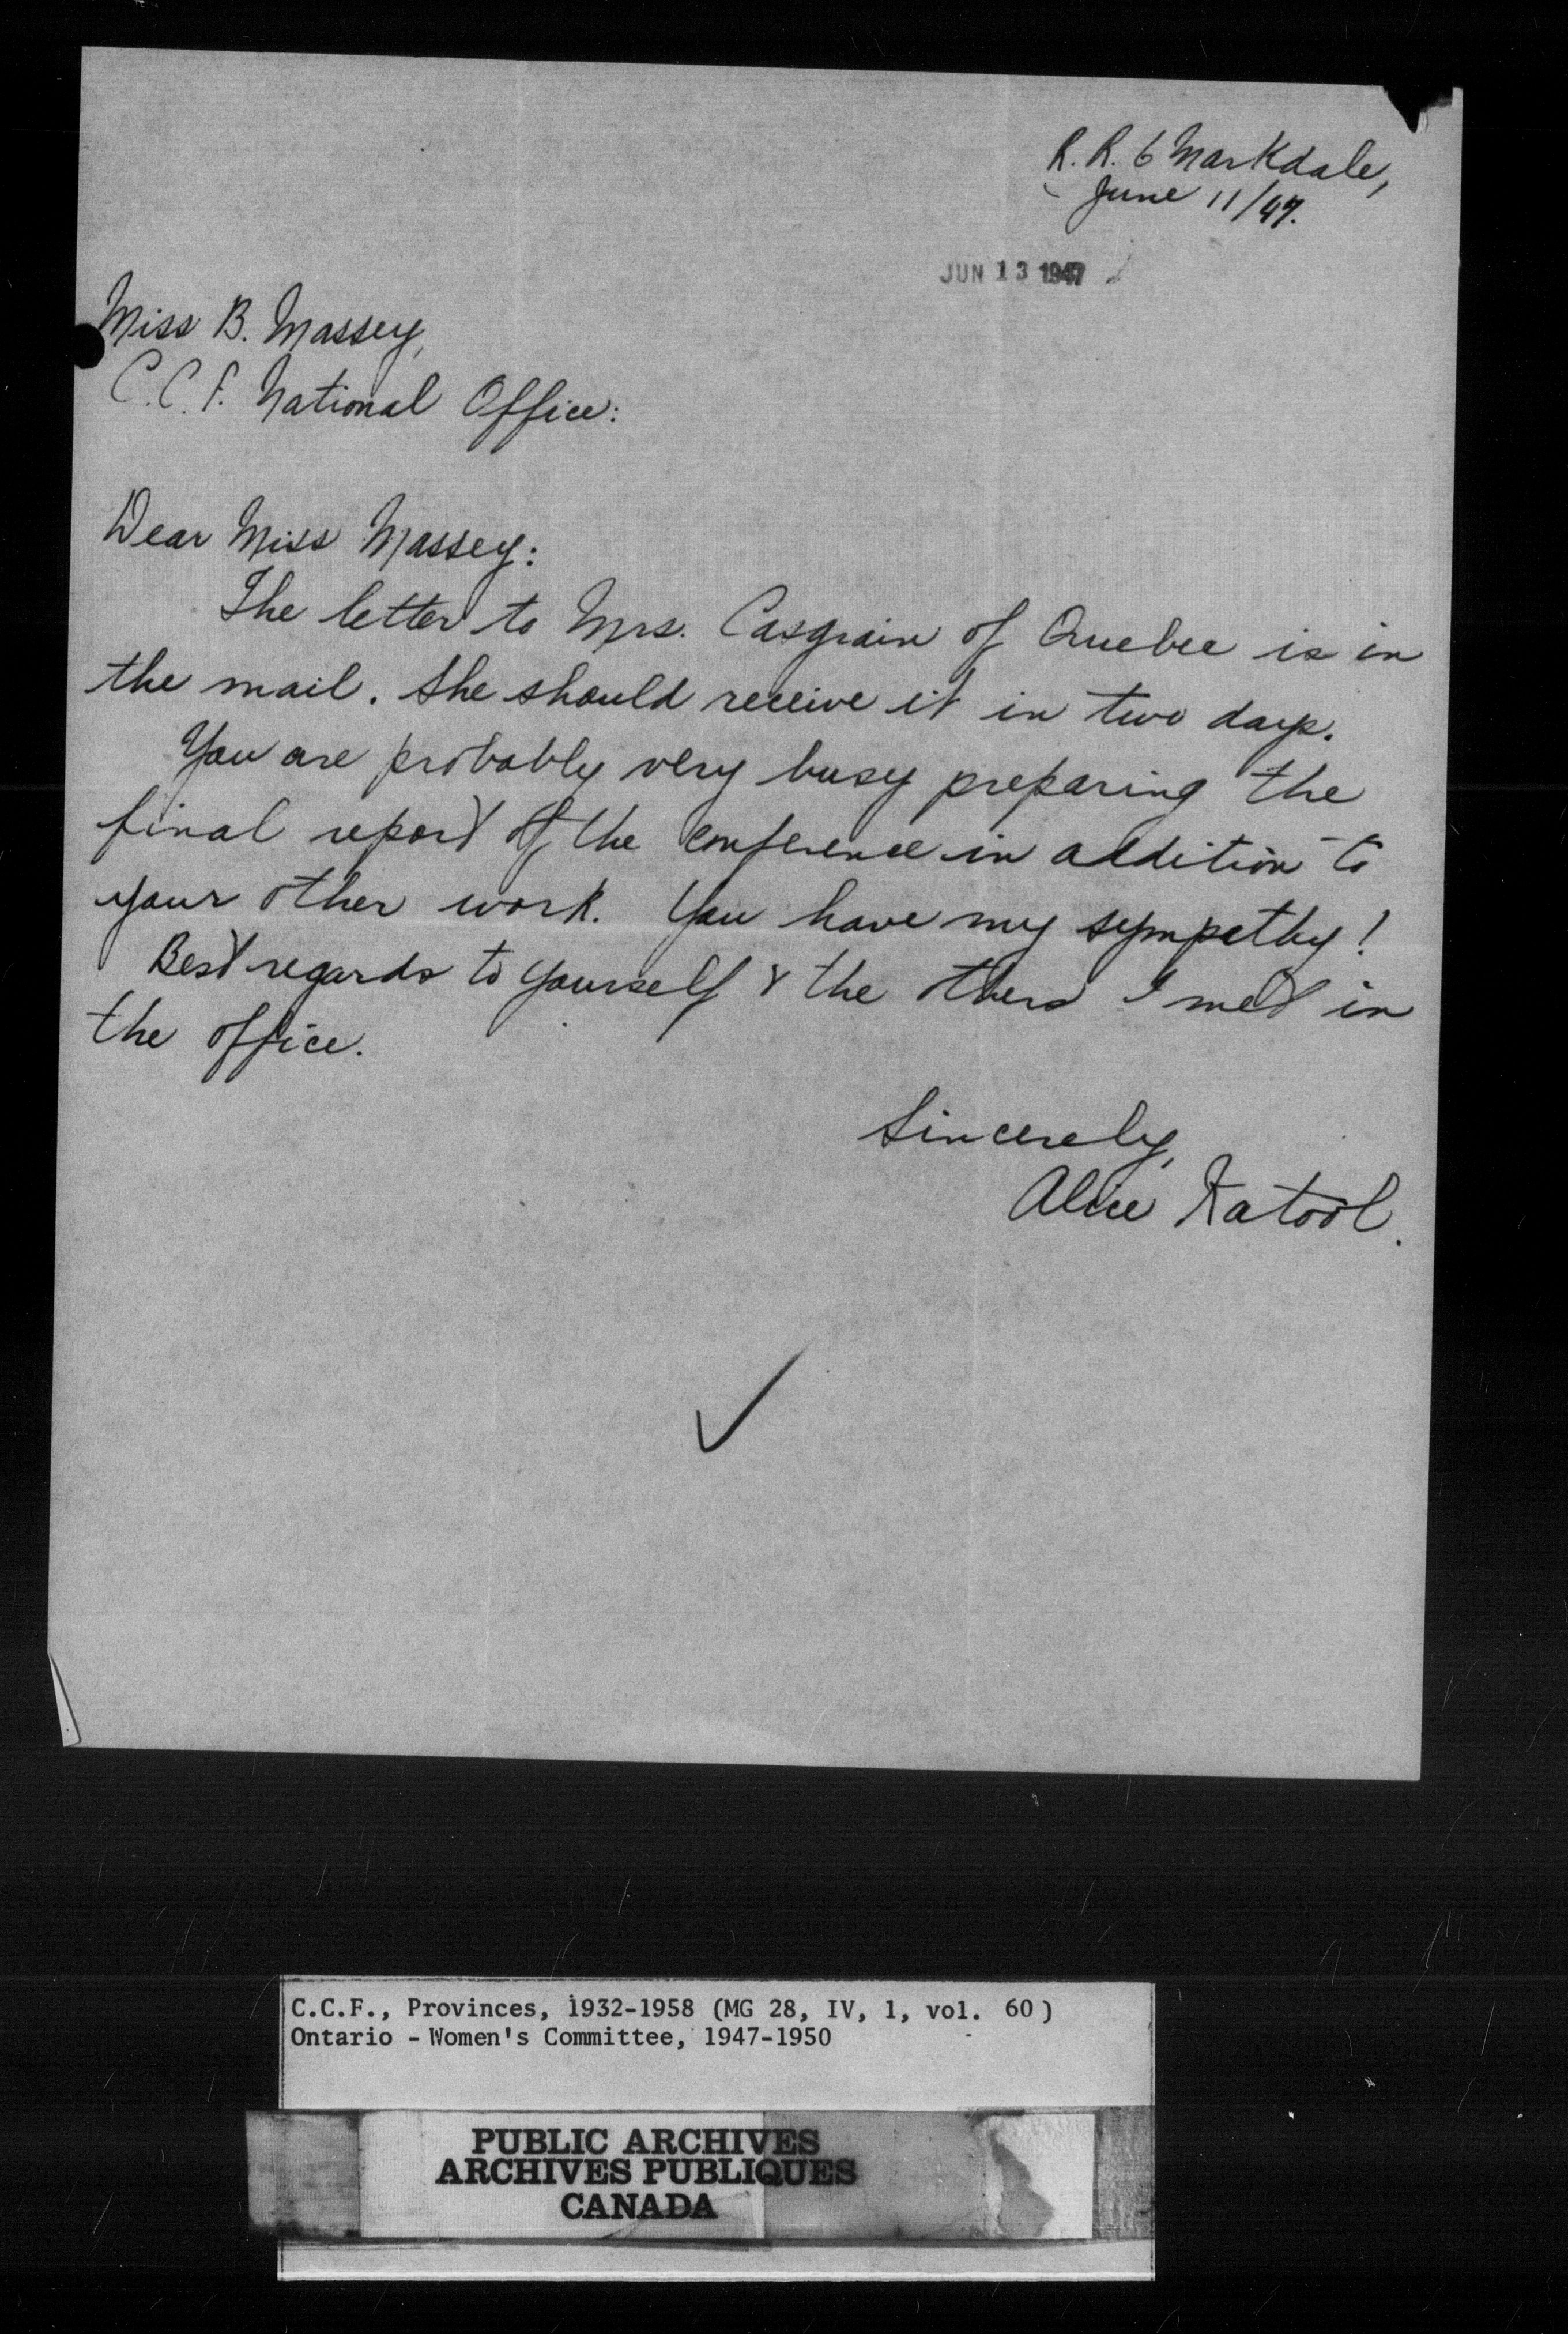 R. R. 6 Markdale,
June 11/47.
JUN 13 1947
Miss B. Massey,
C.C.F. National Office:
Dear Miss Massey:
The letter to Mrs. Casgrain of Quebec is in
the mail. She should receive it in two days.
You are probably very busy preparing the
final report of the conference in addition to
your other work. You have my sympathy!
Best regards to yourself & the others I met in
the office.
Sincerely,
Alice Katool.
C.C.F., Provinces, 1932-1958 (MG 28, IV, 1, vol. 60)
Ontario - Women's Committee, 1947-1950
PUBLIC ARCHIVES
ARCHIVES PUBLIQUES
CANADA